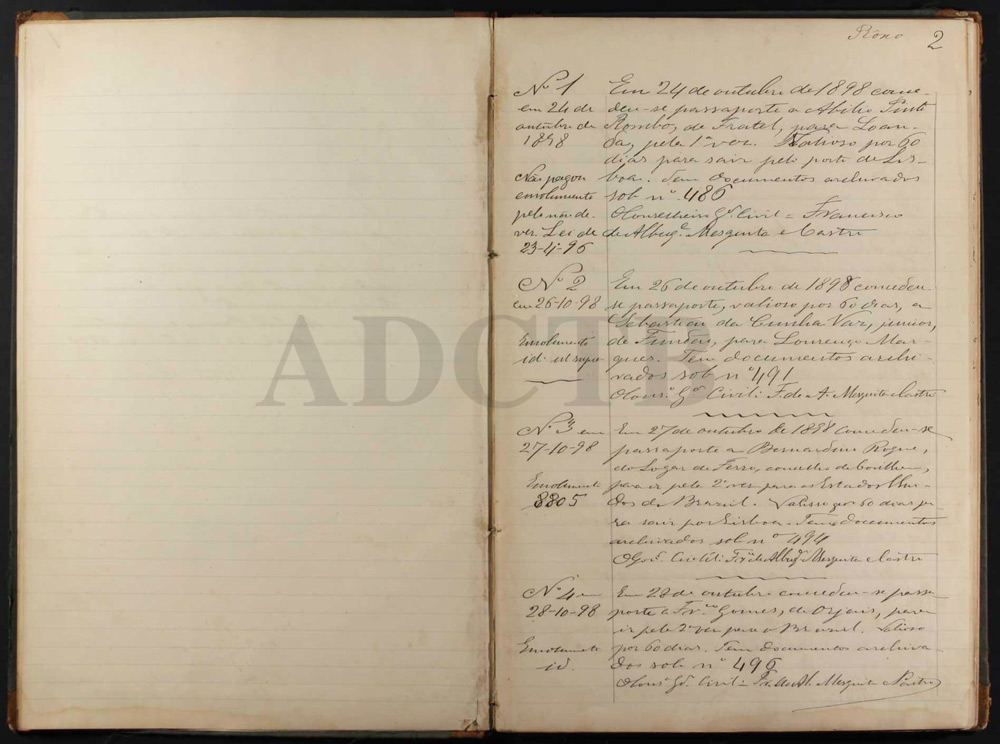 2
Nº 1
em 24 de
outubro de
1898
Não pagou
emolumento
pelo não de-
ver. Lei de
23-4-96
Em 24 de outubro de 1898 conce-
deu-se passaporte a Abilio Pinto
Rombo, de Fratel, para Loan-
da, pela 1ª vez. Valioso por 60
dias para sair pelo porto de Lis-
boa. Tem documentos archivados
sob nº 486
O Conselheiro Gºr Civil = Francisco
de Albuqe Mesquita e Castro
Nº 2
em 26-10-98
Emolumento
id. ut supra
Em 26 de outubro de 1898 concedeu-
se passaporte, valioso por 60 dias, a
Sebastião da Cunha Vaz, junior,
de Fundão, para Lourenço Mar-
ques. Tem documentos archi-
vados sob nº 491
O Consº Gºr Civil: F. de A. Mesquita e Castro
ADCTB
Nº 3 em
27-10-98
Emolumento
8805
Em 27 de outubro de 1898 concedeu-se
passaporte a Bernardino Roque,
do Logar do Ferro, concelho da Covilhan,
para ir pela 2ª vez para os Estados Uni-
dos do Brazil. Valioso por 60 dias pa-
ra sair por Lisboa. Tem documentos
archivados sob nº 494
O Govr Civil: Mesquita e Castro
Nº 4 em
28-10-98
Emolumento
id.
Em 28 de outubro concedeu-se passa-
porte a Frco Gomes, de Orjais, para
ir pela 2ª vez para o Brazil. Valioso
por 60 dias. Tem documentos archiva-
dos sob nº 496
O Consº Gºr Civil = Mesquita e Castro